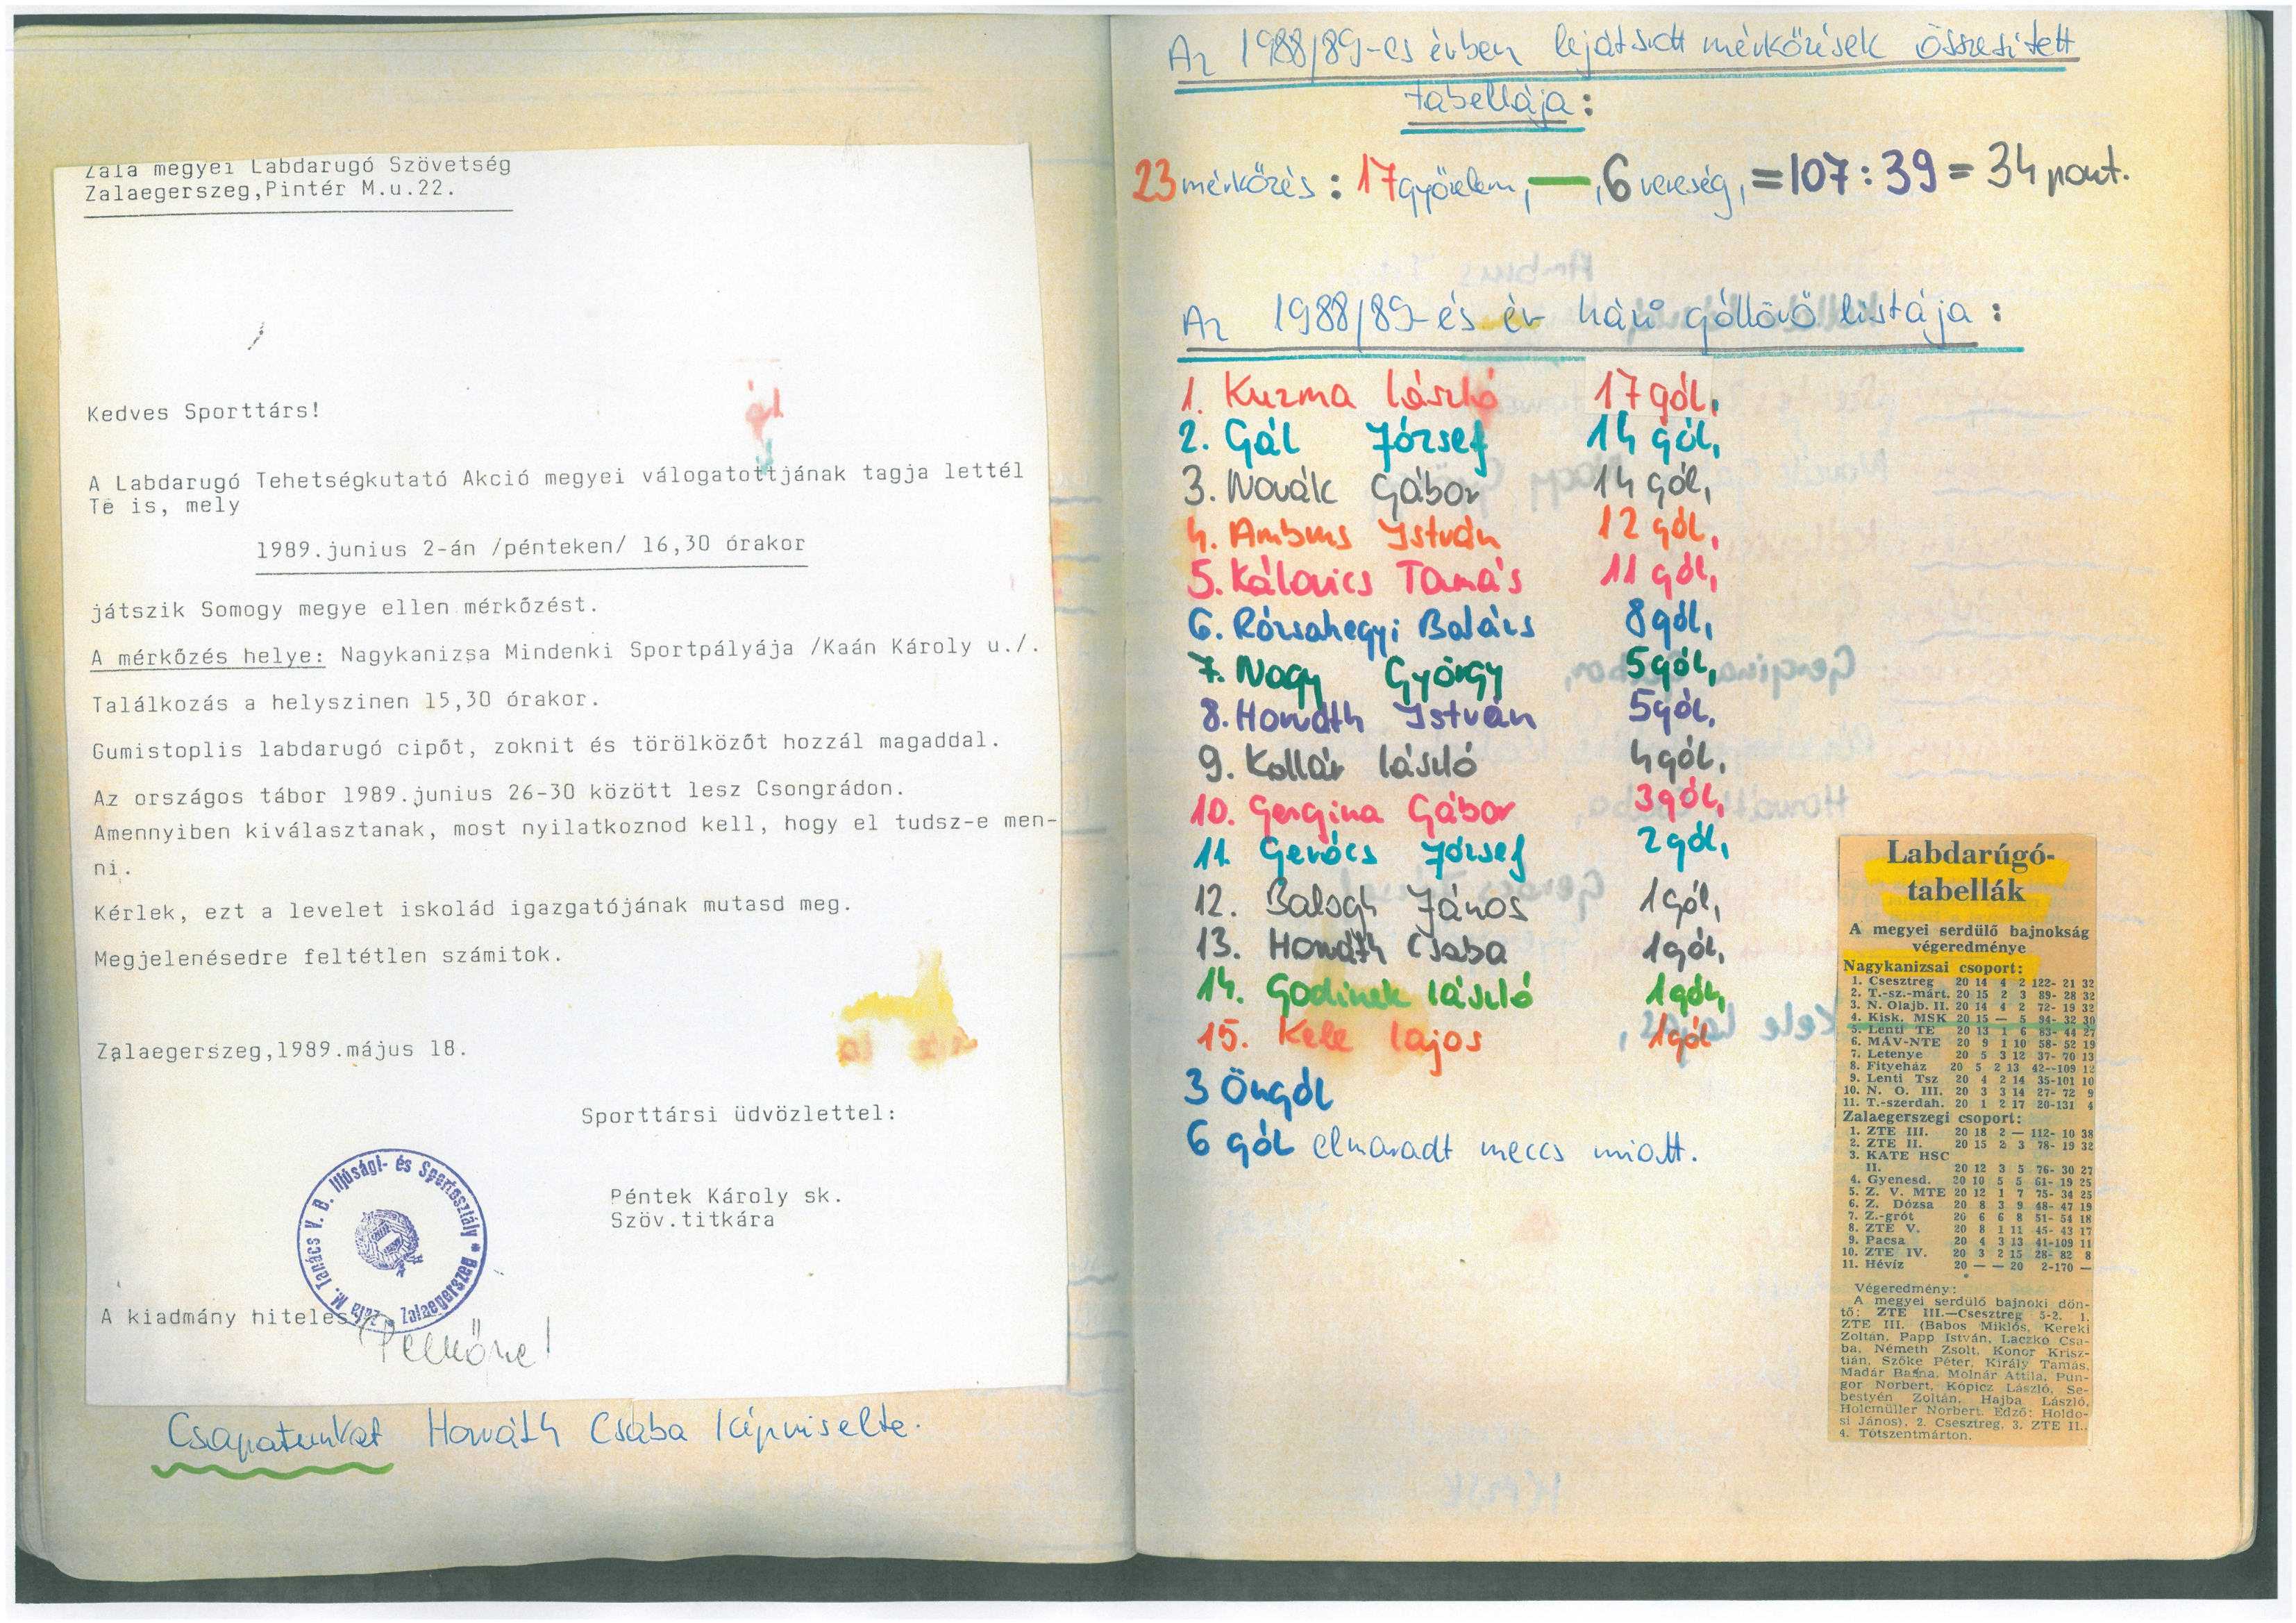 Zala megyei Labdarugó Szövetség
Zalaegerszeg,Pintér M.u.22.
Kedves Sporttárs!
A Labdarugó Tehetségkutató Akció megyei válogatottjának tagja lettél
Te is, mely
1989.junius 2-án /pénteken/ 16,30 órakor
játszik Somogy megye ellen mérkőzést.
A mérkőzés helye: Nagykanizsa Mindenki Sportpályája /Kaán Károly u./.
Találkozás a helyszinen 15,30 órakor.
Gumistoplis labdarugó cipőt, zoknit és törölközőt hozzál magaddal.
Az országos tábor 1989.junius 26-30 között lesz Csongrádon.
Amennyiben kiválasztanak, most nyilatkoznod kell, hogy el tudsz-e men-
ni.
Kérlek, ezt a levelet iskolád igazgatójának mutasd meg.
Megjelenésedre feltétlen számitok.
Zalaegerszeg,1989.május 18.
Sporttársi üdvözlettel:
Péntek Károly sk.
Szöv.titkára
Zala M. Tanács V. B. Ifjúsági- és Sportosztály * Zalaegerszeg
A kiadmány hiteles
Csapatunkat Horváth Csaba képviselte.
Az 1988/89-es évben lejátszott mérkőzések összesített
tabellája:
23 mérkőzés: 17 győzelem, —, 6 vereség, =107:39 = 34 pont.
Az 1988/89-és év házi góllövő listája:
1. Kuzma László 17 gól,
2. Gál József 14 gól,
3. Novák Gábor 14 gól,
4. Ambrus István 12 gól,
5. Kálovics Tamás 11 gól,
6. Rózsahegyi Balázs 8 gól,
7. Nagy György 5 gól,
8. Horváth István 5 gól,
9. Kollár László 4 gól,
10. Gergina Gábor 3 gól,
11. Gerócs József 2 gól,
12. Balogh János 1 gól,
13. Horváth Csaba 1 gól,
14. Godinek László 1 gól,
15. Kele Lajos 1 gól
3 Öngól
6 gól elmaradt meccs miatt.
Labdarúgó-
tabellák
A megyei serdülő bajnokság
végeredménye
Nagykanizsai csoport:
1. Csesztreg 20 14 4 2 122- 21 32
2. T.-sz.-márt. 20 15 2 3 89- 28 32
3. N. Olajb. II. 20 14 4 2 72- 19 32
4. Kisk. MSK 20 15 — 5 94- 32 30
5. Lenti TE 20 13 1 6 83- 44 27
6. MÁV-NTE 20 9 1 10 58- 52 19
7. Letenye 20 5 3 12 37- 70 13
8. Fityeház 20 5 2 13 42--109 12
9. Lenti Tsz 20 4 2 14 35-101 10
10. N. O. III. 20 3 3 14 27- 72 9
11. T.-szerdah. 20 1 2 17 20-131 4
Zalaegerszegi csoport:
1. ZTE III. 20 18 2 — 112- 10 38
2. ZTE II. 20 15 2 3 78- 19 32
3. KATE HSC
II. 20 12 3 5 76- 30 27
4. Gyenesd. 20 10 5 5 61- 19 25
5. Z. V. MTE 20 12 1 7 75- 34 25
6. Z. Dózsa 20 8 3 9 48- 47 19
7. Z.-grót 20 6 6 8 51- 54 18
8. ZTE V. 20 8 1 11 45- 43 17
9. Pacsa 20 4 3 13 41-109 11
10. ZTE IV. 20 3 2 15 28- 82 8
11. Hévíz 20 — — 20 2-170 —
Végeredmény:
A megyei serdülő bajnoki dön-
tő: ZTE III.—Csesztreg 5-2. 1.
ZTE III. (Babos Miklós, Kereki
Zoltán, Papp István, Laczkó Csa-
ba, Németh Zsolt, Konor Krisz-
tián, Szőke Péter, Király Tamás,
Madár Barna, Molnár Attila, Pun-
gor Norbert, Kópicz László, Se-
bestyén Zoltán, Hajba László,
Holemüller Norbert. Edző: Holdo-
si János), 2. Csesztreg, 3. ZTE II.,
4. Tótszentmárton.